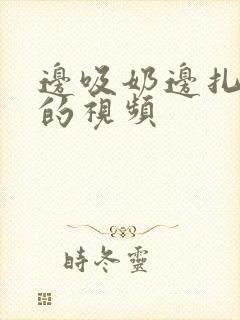 邊吸奶邊扎
的視頻
時冬靈